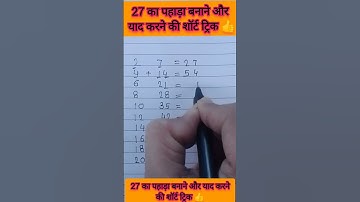 27 का पहाड़ा बनाने और
याद करने की शॉर्ट ट्रिक 👍
2 7 = 27
4 + 14 = 54
6 21 = 1
8 28 =
10 35 =
12 42
14
16
18
20
27 का पहाड़ा बनाने और याद करने
की शॉर्ट ट्रिक 👍